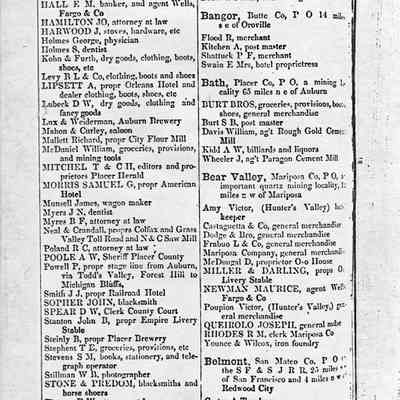 HALL E M, banker, and agent Wells,
Fargo & Co
HAMILTON JO, attorney at law
HARWOOD J, stoves, hardware, etc
Holmes George, physician
Holmes S, dentist
Kohn & Furth, dry goods, clothing, boots,
shoes, etc
Levy R L & Co, clothing, boots and shoes
LIPSETT A, propr Orleans Hotel and
dealer clothing, boots, shoes, etc
Lubeck D W, dry goods, clothing and
fancy goods
Lux & Weiderman, Auburn Brewery
Mahon & Curley, saloon
Mallett Richard, propr City Flour Mill
McDaniel William, groceries, provisions,
and mining tools
MITCHEL T & C H, editors and pro-
prietors Placer Herald
MORRIS SAMUEL G, propr American
Hotel
Munsell James, wagon maker
Myers J N, dentist
Myres B F, attorney at law
Neal & Crandall, props Colfax and Grass
Valley Toll Road and N C Saw Mill
Poland R C, attorney at law
POOLE A W, Sheriff Placer County
Powell P, propr stage line from Auburn,
via Todd's Valley, Forest Hill to
Michigan Bluffs,
Smith J J, propr Railroad Hotel
SOPHER JOHN, blacksmith
SPEAR D W, Clerk County Court
Stanton John B, propr Empire Livery
Stable
Steinly B, propr Placer Brewery
Stephens T E, groceries, provisions, etc
Stevens S M, books, stationery, and tele-
graph operator
Stillman W B, photographer
STONE & PREDOM, blacksmiths and
horse shoers
Bangor, Butte Co, P O 14
s e of Oroville
Flood R, merchant
Kitchen A, post master
Shattuck P F, merchant
Swain Mrs, hotel proprietress
Bath, Placer Co, P O, a mining
cality 65 miles n e of Auburn
BURT BROS, groceries, provisions,
shoes, general merchandise
Burt S B, post master
Davis William, ag't Rough Gold
Mill
Kidd A W, billiards and liquors
Wheeler J, ag't Paragon Cement Mill
Bear Valley, Mariposa Co, P O,
important quartz mining locality,
miles n w of Mariposa
Amy Victor, (Hunter's Valley)
keeper
Castagnetta & Co, general merchandise
Dodge & Bro, general merchandise
Frabuo L & Co, general merchandise
Mariposa Company, general merchandise
McDougal D, proprietor O-o House
MILLER & DARLING, props
Livery Stable
NEWMAN MAURICE, agent Wells
Fargo & Co
Poupion Victor, (Hunter's Valley,)
eral merchandise
QUEIROLO JOSEPH, general
RHODES R M, clerk Mariposa Co
Younce & Wilcox, iron foundry
Belmont, San Mateo Co, P O
the S F & S J R R, 25 miles
of San Francisco and 4 miles
Redwood City